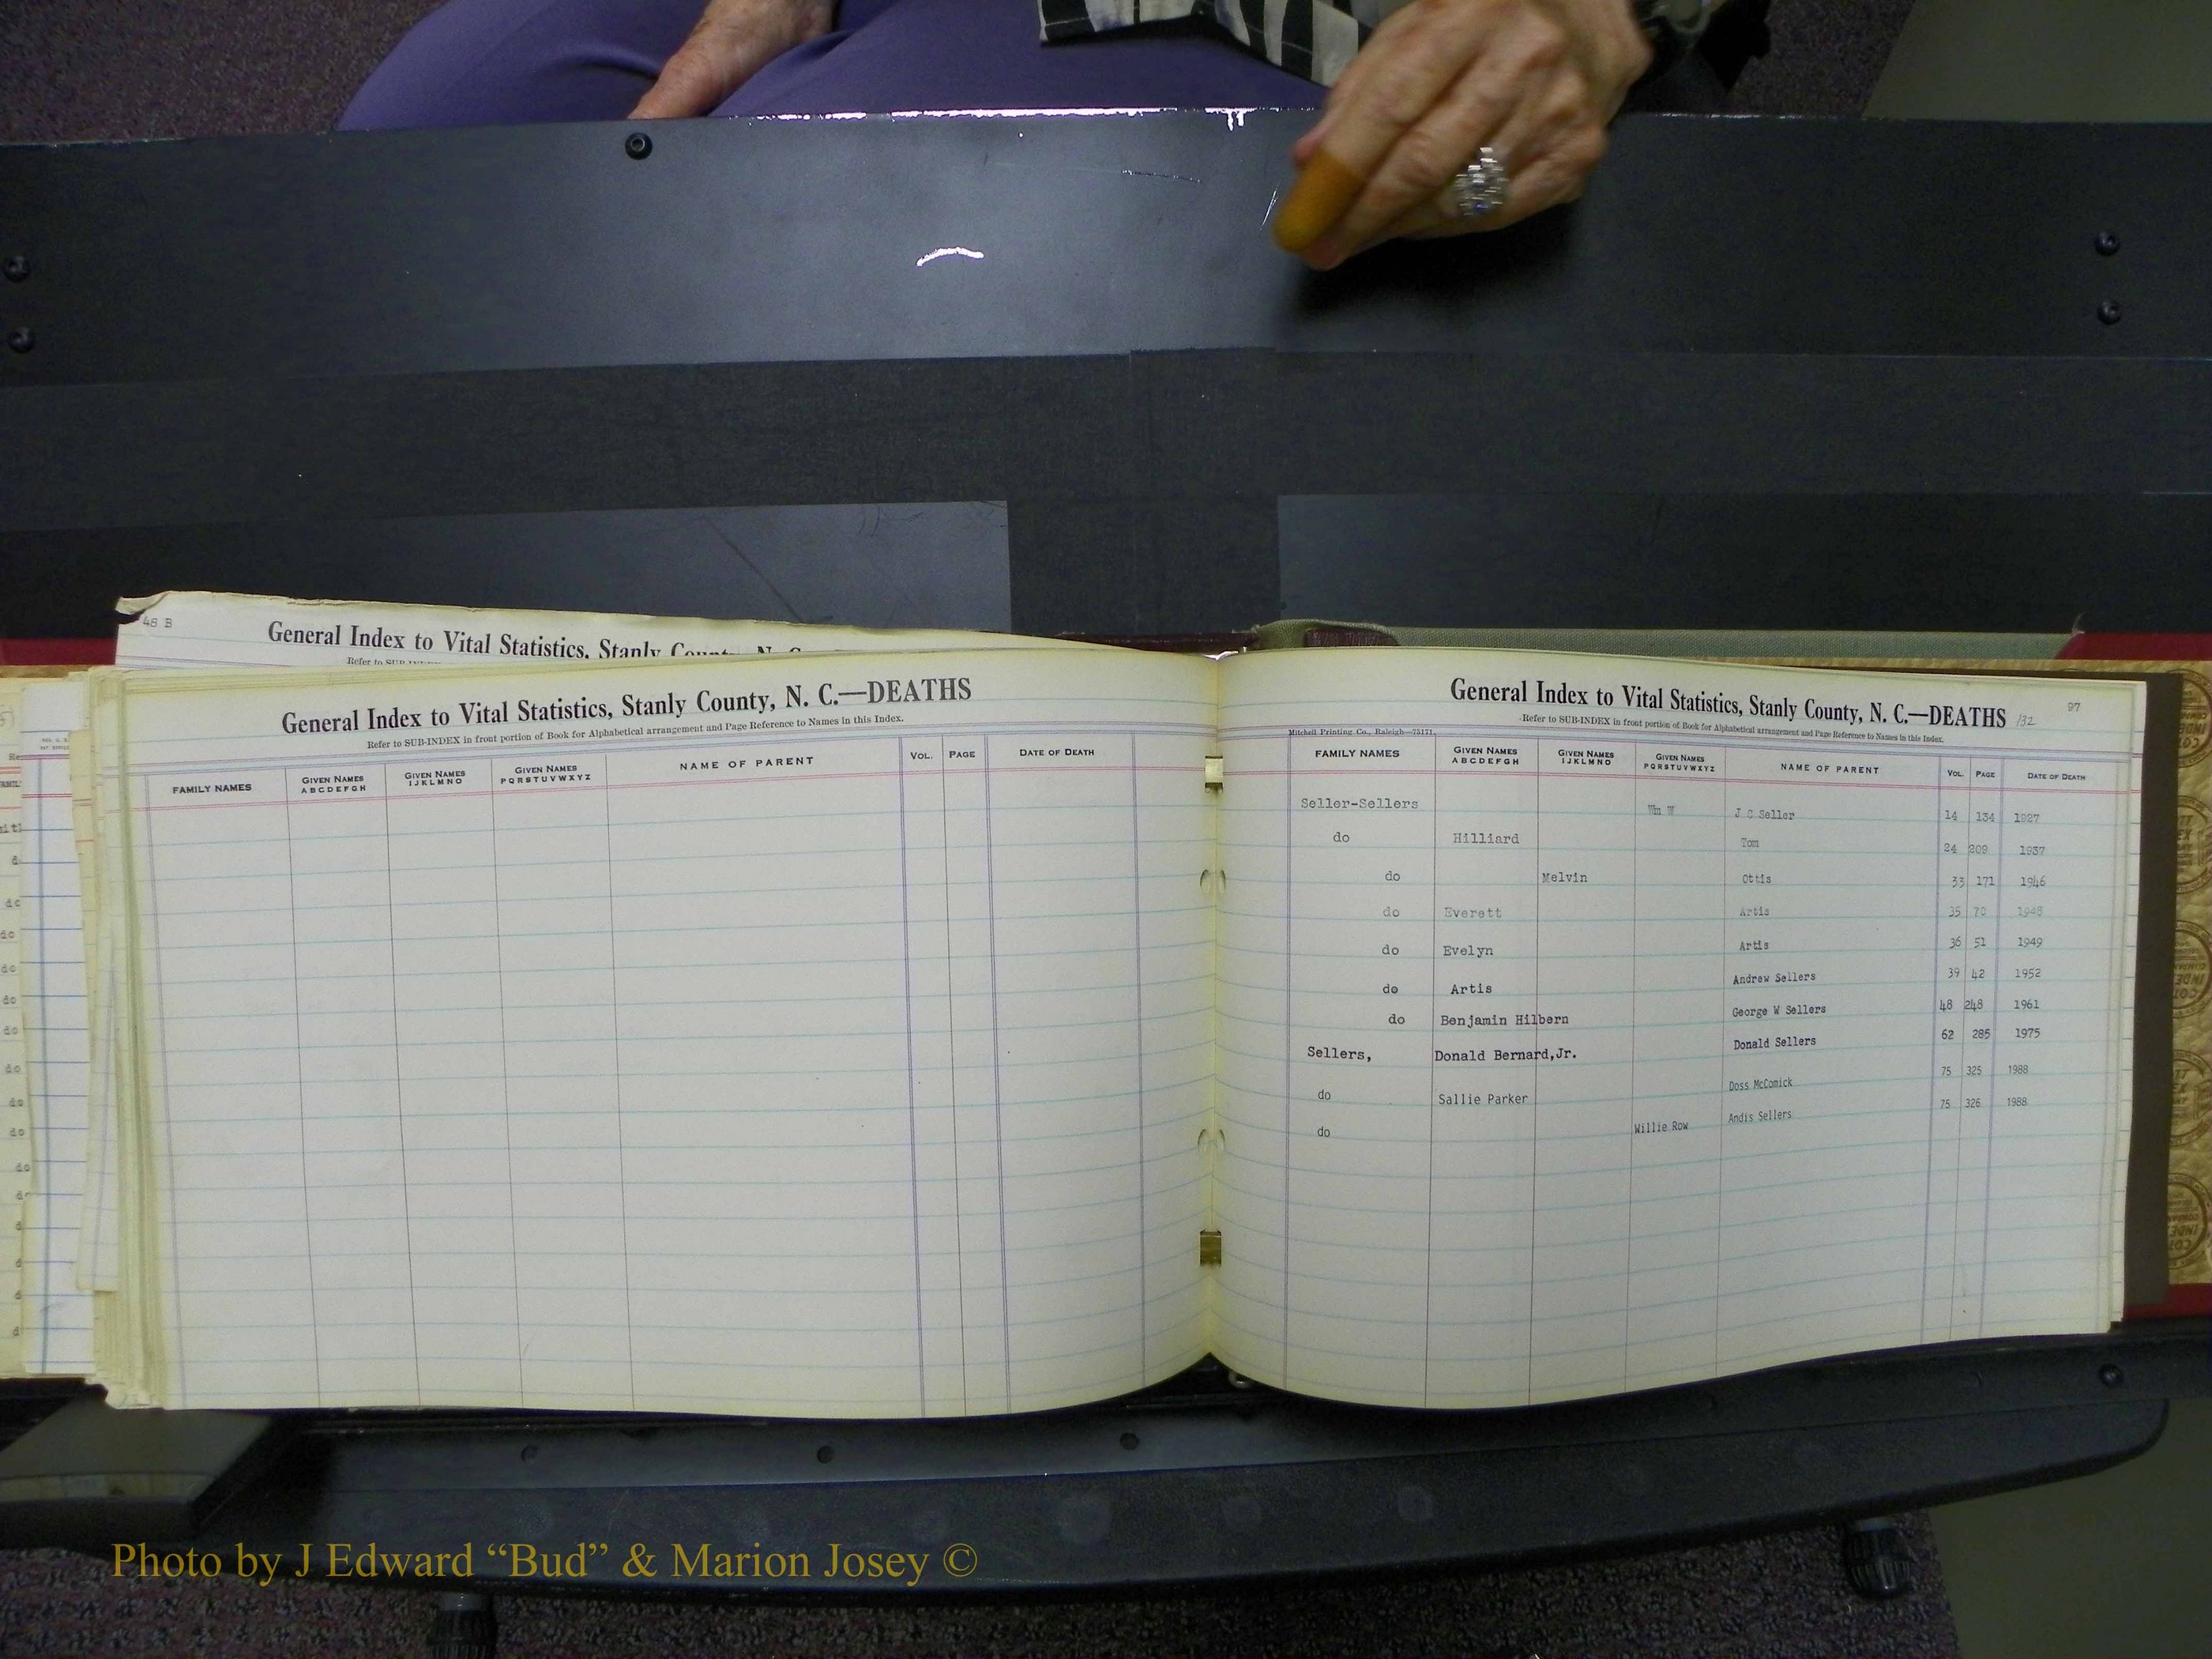 48 B
General Index to Vital Statistics, Stanly County, N. C.
General Index to Vital Statistics, Stanly County, N. C.—DEATHS
Refer to SUB-INDEX in front portion of Book for Alphabetical arrangement and Page Reference to Names in this Index.
FAMILY NAMES GIVEN NAMES ABCDEFGH GIVEN NAMES IJKLMNO GIVEN NAMES PQRSTUVWXYZ NAME OF PARENT VOL. PAGE DATE OF DEATH
97
General Index to Vital Statistics, Stanly County, N. C.—DEATHS 132
Refer to SUB-INDEX in front portion of Book for Alphabetical arrangement and Page Reference to Names in this Index.
Mitchell Printing Co., Raleigh—75171.
FAMILY NAMES GIVEN NAMES ABCDEFGH GIVEN NAMES IJKLMNO GIVEN NAMES PQRSTUVWXYZ NAME OF PARENT VOL. PAGE DATE OF DEATH
Seller-Sellers Wm W J C Seller 14 134 1927
do Hilliard Tom 24 209 1937
do Melvin Ottis 33 171 1946
do Everett Artis 35 70 1948
do Evelyn Artis 36 51 1949
do Artis Andrew Sellers 39 42 1952
do Benjamin Hilbern George W Sellers 48 248 1961
Sellers, Donald Bernard,Jr. Donald Sellers 62 285 1975
do Sallie Parker Doss McComick 75 325 1988
do Willie Row Andis Sellers 75 326 1988
Photo by J Edward “Bud” & Marion Josey ©